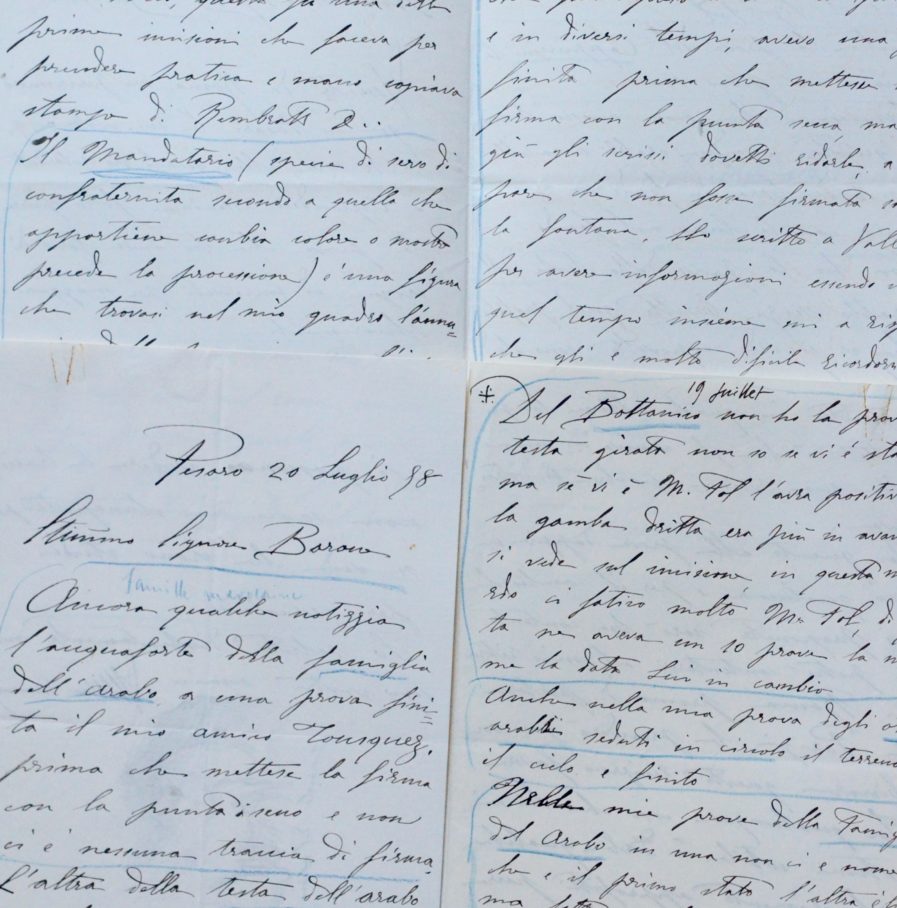 questa fu una delle
prime incisioni che faceva per
prendere pratica e mano copiava
stampe di Rembratt
Il Mandatario (specie di servo di
confraternita secondo a quella che
appartiene cambia colore o mostra
precede la processione) é una figura
che trovasi nel mio quadro l'annu=
e in diversi tempi, avevo una
finita prima che mettesse
firma con la punta secca, ma
giù gli scrissi dovetti ridarle, a
pare che non fosse firmata
la fontana. Ho scritto a Vall
per avere informazioni essendo
quel tempo insieme mi a ris
che gli e molto dificile ricordar
Pesaro 20 Luglio 98
Stimmo Signore Barone
famille marocaine
Ancora qualche notizzia
l'acquaforte della famiglia
dell'arabo a una prova fini=
ta il mio amico Tousquez.
prima che mettese la firma
con la punta a seco e non
ci é nessuna traccia di firma
L'altra della testa dell'arabo
19 Juillet
+ Del Bottanico non ho la prov
testa girata non so se vi é sta
ma se vi é M. Fol l'avra positiv
la gamba dritta era più in avan
si vede sul incisione, in questa
rdo ci fativo molto, Mr Fol, di
ta ne aveva un 10 prove la
me la data Lui in cambio
Anche nella mia prova degli
arabi seduti in circolo il terreno
il cielo e finito
Nelle mie prove della Famig
del Arabo in una non ci e nome
che e il primo stato l'altra é